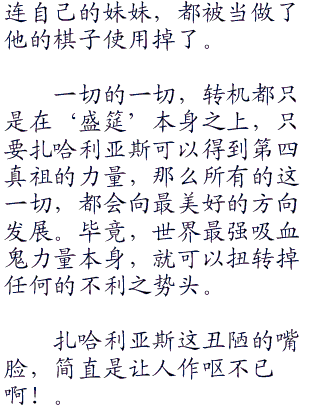 连自己的妹妹，都被当做了
他的棋子使用掉了。
一切的一切，转机都只
是在‘盛筵’本身之上，只
要扎哈利亚斯可以得到第四
真祖的力量，那么所有的这
一切，都会向最美好的方向
发展。毕竟，世界最强吸血
鬼力量本身，就可以扭转掉
任何的不利之势头。
扎哈利亚斯这丑陋的嘴
脸，简直是让人作呕不已
啊！。